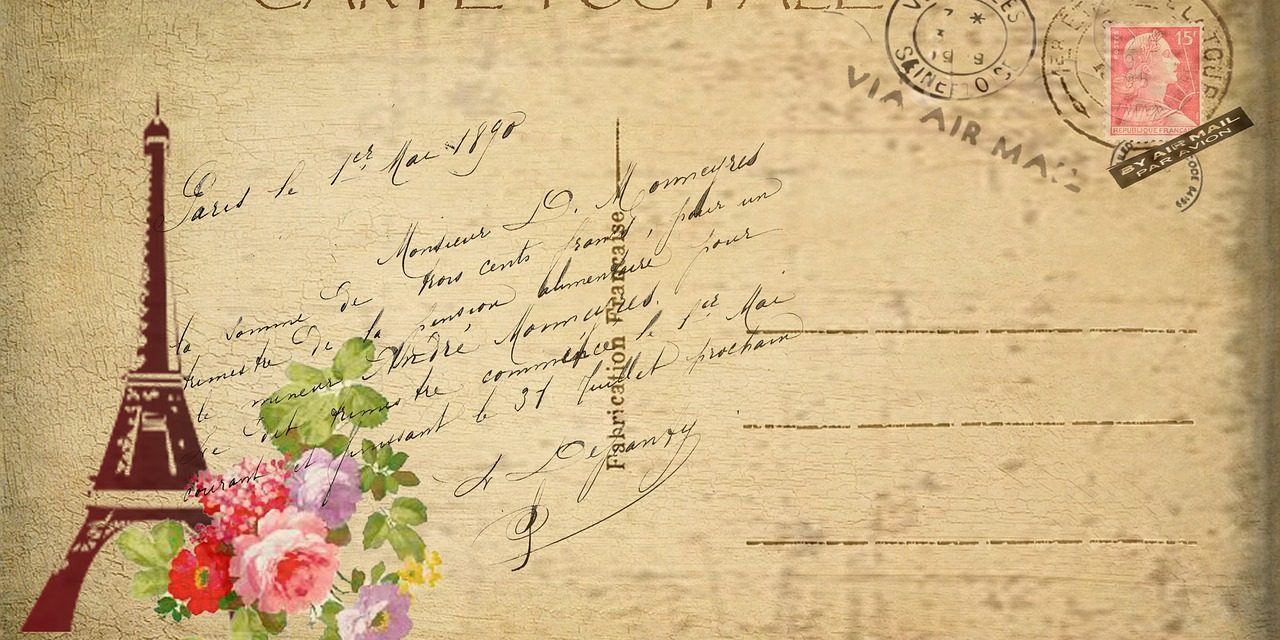 CARTE POSTALE
Paris le 1er Mai 1890
Monsieur D. Monneyres
de trois cents francs, pour un
la somme
trimestre de la pension alimentaire pour
le mineur André Monneyres.
Le dit trimestre commence le 1er Mai
courant et finissant le 31 Juillet prochain
Fabrication Française
SEINE ET OISE
VIA AIR MAIL
15F
POSTES
REPUBLIQUE FRANCAISE
BY AIR MAIL
PAR AVION